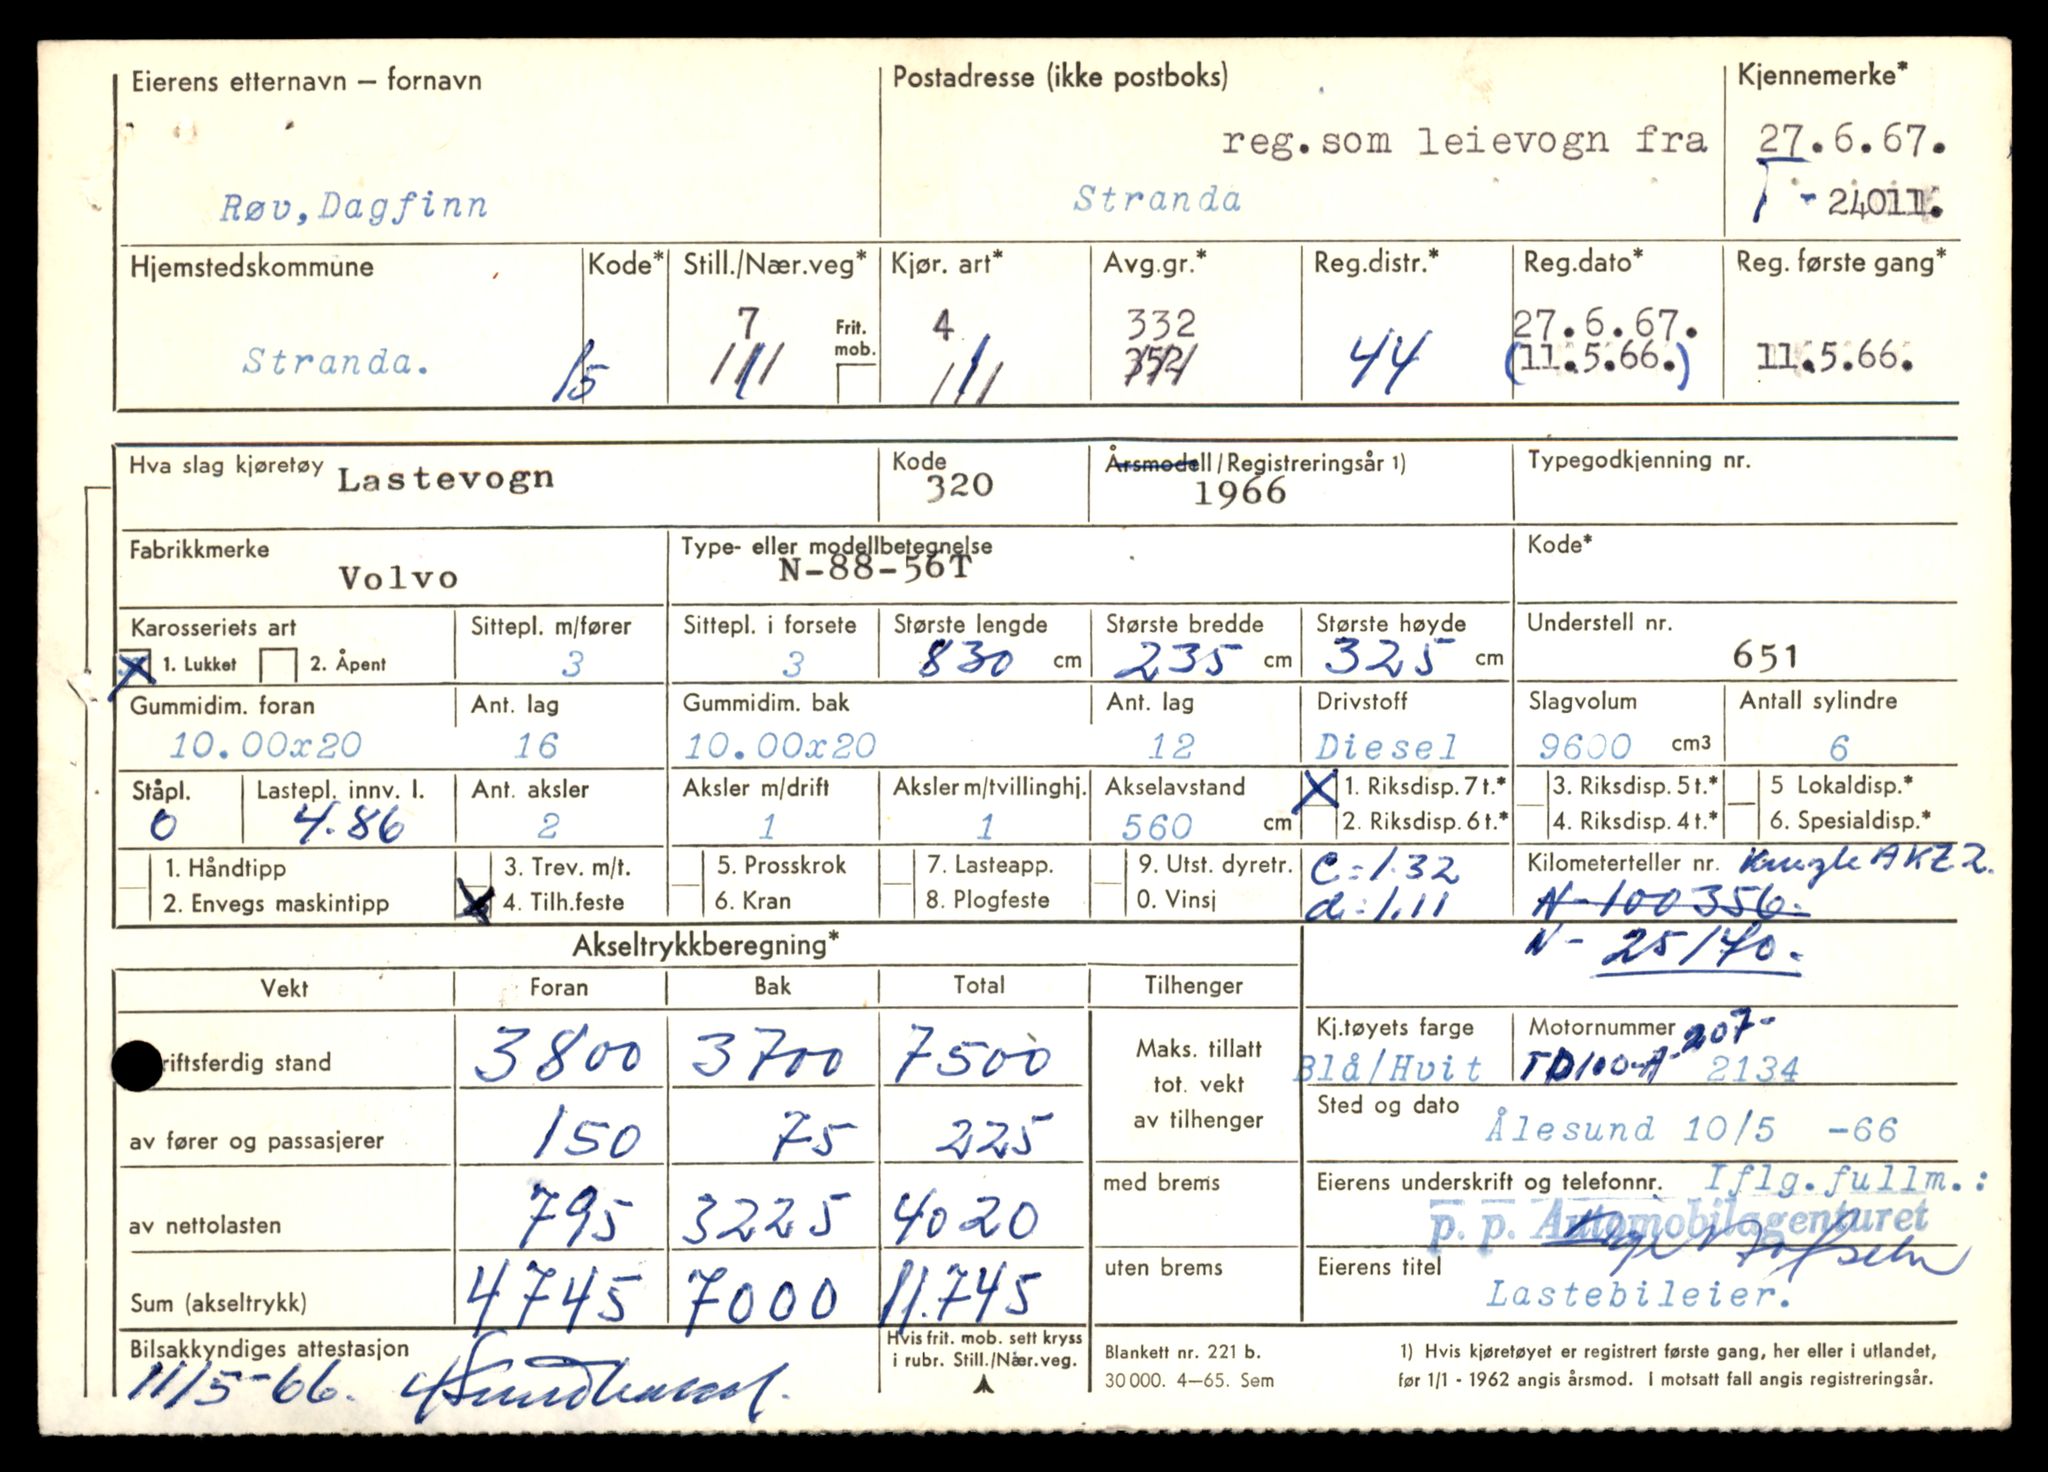 Eierens etternavn — fornavn
Postadresse (ikke postboks)
Kjennemerke*
reg.som leievogn fra 27.6.67.
Røv, Dagfinn
Stranda
T - 24011.
Hjemstedskommune
Kode*
Still./Nær.veg*
Kjør. art*
Avg.gr.*
Reg.distr.*
Reg.dato*
Reg. første gang*
7
Frit. mob.
4
332
27.6.67.
Stranda.
15
352
44
(11.5.66.)
11.5.66.
Hva slag kjøretøy
Lastevogn
Kode
320
Årsmodell/Registreringsår 1)
1966
Typegodkjenning nr.
Fabrikkmerke
Volvo
Type- eller modellbetegnelse
N-88-56T
Kode*
Karosseriets art
1. Lukket
2. Åpent
Sittepl. m/fører
3
Sittepl. i forsete
3
Største lengde
830 cm
Største bredde
235 cm
Største høyde
325 cm
Understell nr.
651
Gummidim. foran
10.00x20
Ant. lag
16
Gummidim. bak
10.00x20
Ant. lag
12
Drivstoff
Diesel
Slagvolum
9600 cm3
Antall sylindre
6
Ståpl.
0
Lastepl. innv. l.
4.86
Ant. aksler
2
Aksler m/drift
1
Aksler m/tvillinghj.
1
Akselavstand
560 cm
1. Riksdisp. 7 t.*
2. Riksdisp. 6 t.*
3. Riksdisp. 5 t.*
4. Riksdisp. 4 t.*
5 Lokaldisp.*
6. Spesialdisp.*
1. Håndtipp
2. Envegs maskintipp
3. Trev. m/t.
4. Tilh.feste
5. Prosskrok
6. Kran
7. Lasteapp.
8. Plogfeste
9. Utst. dyretr.
0. Vinsj
C = 1.32
d. = 1.11
Kilometerteller nr. Kinzle AKZ 2.
N-100356.
N- 25170.
Akseltrykkberegning*
Vekt
Foran
Bak
Total
Tilhenger
riftsferdig stand
3800
3700
7500
Maks. tillatt
tot. vekt
av tilhenger
Kj.tøyets farge
Blå/Hvit
Motornummer 207-
TD100-A- 2134
av fører og passasjerer
150
75
225
Sted og dato
Ålesund 10/5 -66
av nettolasten
795
3225
4020
med brems
Eierens underskrift og telefonnr. Iflg.fullm.:
p. p. Automobilagenturet
Sum (akseltrykk)
4745
7000
11.745
uten brems
Eierens titel
Lastebileier.
Bilsakkyndiges attestasjon
11/5-66.
Hvis frit. mob. sett kryss
i rubr. Still./Nær.veg.
Blankett nr. 221 b.
30 000. 4—65. Sem
1) Hvis kjøretøyet er registrert første gang, her eller i utlandet,
før 1/1 - 1962 angis årsmod. I motsatt fall angis registreringsår.